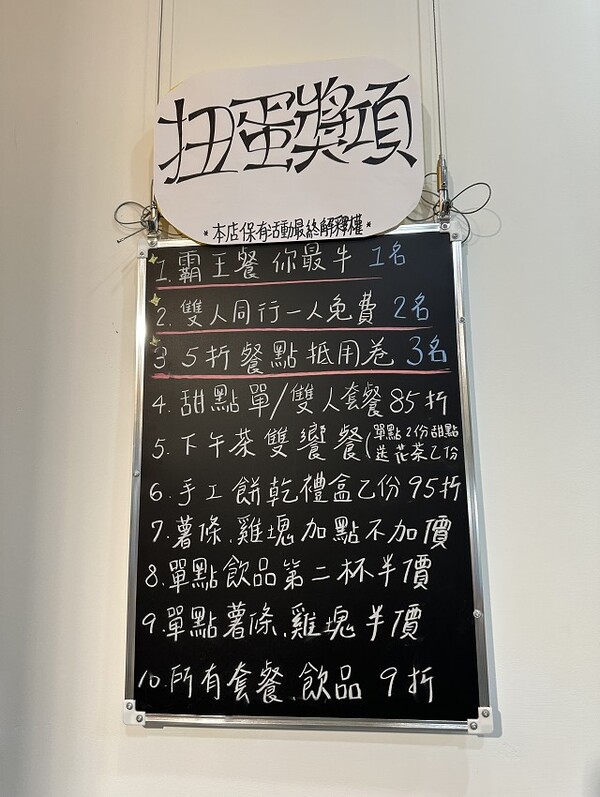 扭蛋獎項
*本店保有活動最終解釋權*
1.霸王餐 你最牛 1名
2.雙人同行一人免費 2名
3 5折餐點抵用卷 3名
4.甜點單/雙人套餐85折
5.下午茶雙饗餐(單點2份甜點
送花茶乙份
6.手工餅乾禮盒乙份95折
7.薯條.雞塊加點不加價
8.單點飲品第二杯半價
9.單點薯條.雞塊半價
10.所有套餐.飲品 9折